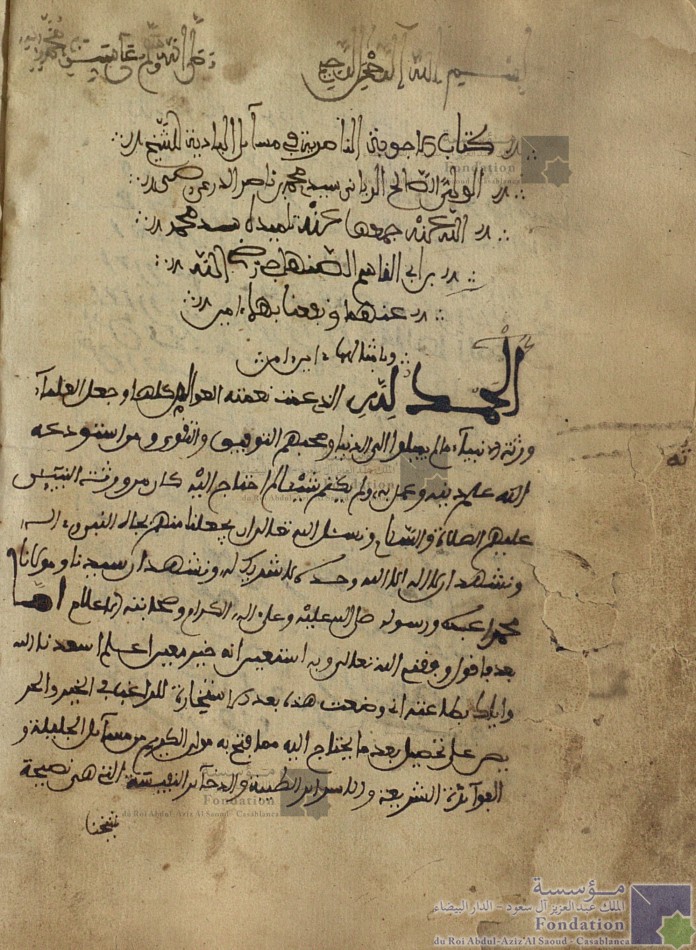 بسم الله الرحمن الرحيم
وصلى الله على سيدنا محمد
كتاب الاجوبة الناصرية في مسائل البادية للشيخ
الولي الصالح الرباني سيد محمد بن ناصر الدرعي رضي
الله عنه جمعها عنه تلميذه سيد محمد
بن ابي القاسم الصنهاجي رضي الله
عنهما ونفعنا بهما امين
وبامثالهما امين امين
الحمد لله الذي عمت نعمته العوالم كلها وجعل العلماء
ورثة الانبياء ما لم يميلوا الى الدنيا وصحبهم التوفيق والتقوى ومن استودعه
الله علم دينه وعمل به ولم يكتم شيئا لما احتاج اليه كان من ورثة النبيين
عليهم الصلاة والسلام ونسئل الله تعالى ان يجعلنا منهم بجاه
ونشهد ان لا اله الا الله وحده لا شريك له ونشهد ان سيدنا ومولانا
محمدا عبده ورسوله صلى الله عليه وعلى اله الكرام وصحابته الاعلام اما
بعد فاقول وفقني الله تعالى وبه استعين انه خير معين اعلم اسعدنا الله
واياك بطاعته اني وضعت هذا بعد الاستخارة للراغب في الخير والحر
يص على تحصيل بعد ما يحتاج اليه مما فتح به مولى الكريم من مسائل الجليلة و
الفوائد الشريعة والاسرار الطيبة والذخائر النفيسة التي هي نصيحة
شيخنا
مؤسسة
الملك عبد العزيز آل سعود - الدار البيضاء
Fondation
du Roi Abdul-Aziz Al Saoud - Casablanca